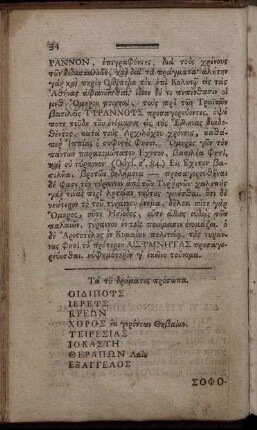 34
ΡΑΝΝΟΝ, ἐπιγραφόντες, διὰ τοὺς χρόνους
τῶν διδασκαλιῶν, καὶ διὰ τὰ πράγματα· ἀλήτην
γὰρ καὶ πηρὸν Οἰδίποδα τὸν ἐπὶ Κολωνῷ εἰς τὰς
Ἀθήνας ἀφικνεῖσθαι. ἴδιον δέ τι πεπόνθασιν οἱ
μεθ᾽ Ὅμηρον ποιηταὶ, τοὺς πρὸ τῶν Τρωϊκῶν
βασιλεῖς ΤΥΡΑΝΝΟΥΣ προσαγορεύοντες, ὀψέ
ποτε τοῦδε τοῦ ὀνόματος εἰς τοὺς Ἕλληνας διαδο-
θέντος, κατὰ τοὺς Ἀρχιλόχου χρόνους, καθά-
περ Ἱππίας ὁ σοφιστής φησιν. Ὅμηρος γοῦν τὸν
πάντων παρανομώτατον Ἔχετον, βασιλέα φησὶ,
καὶ οὐ τύραννον, Εἰς Ἔχετον βα-
σιλῆα, βροτῶν δηλήμονα — προσαγορευθῆναι
δέ φασι τὸν τύραννον ἀπὸ τῶν Τυρρηνῶν· χαλεποὺς
γάρ τινας περὶ λῃστείαν τούτους γενέσθαι. ὅτι δὲ
νεώτερον τὸ τοῦ τυράννου ὄνομα, δῆλον. οὔτε γὰρ
Ὅμηρος, οὔτε Ἡσίοδος, οὔτε ἄλλος οὐδεὶς τῶν
παλαιῶν, τύραννον ἐν τοῖς ποιήμασιν ὀνομάζει. ὁ
δὲ Ἀριστοτέλης ἐν Κυμαίων πολιτείᾳ, τοὺς τυράν-
νους φησὶ τὸ πρότερον ΑΙΣΥΜΝΗΤΑΣ προσαγο-
ρεύεσθαι. εὐφημότερον γὰρ ἐκεῖνο τοὔνομα.
Τὰ τοῦ δράματος πρόσωπα.
ΟΙΔΙΠΟΥΣ
ΙΕΡΕΥΣ
ΚΡΕΩΝ
ΧΟΡΟΣ ἐκ γερόντων Θηβαίων.
ΤΕΙΡΕΣΙΑΣ
ΙΟΚΑΣΤΗ
ΘΕΡΑΠΩΝ Λαΐου
ΕΞΑΓΓΕΛΟΣ
ΣΟΦΟ-